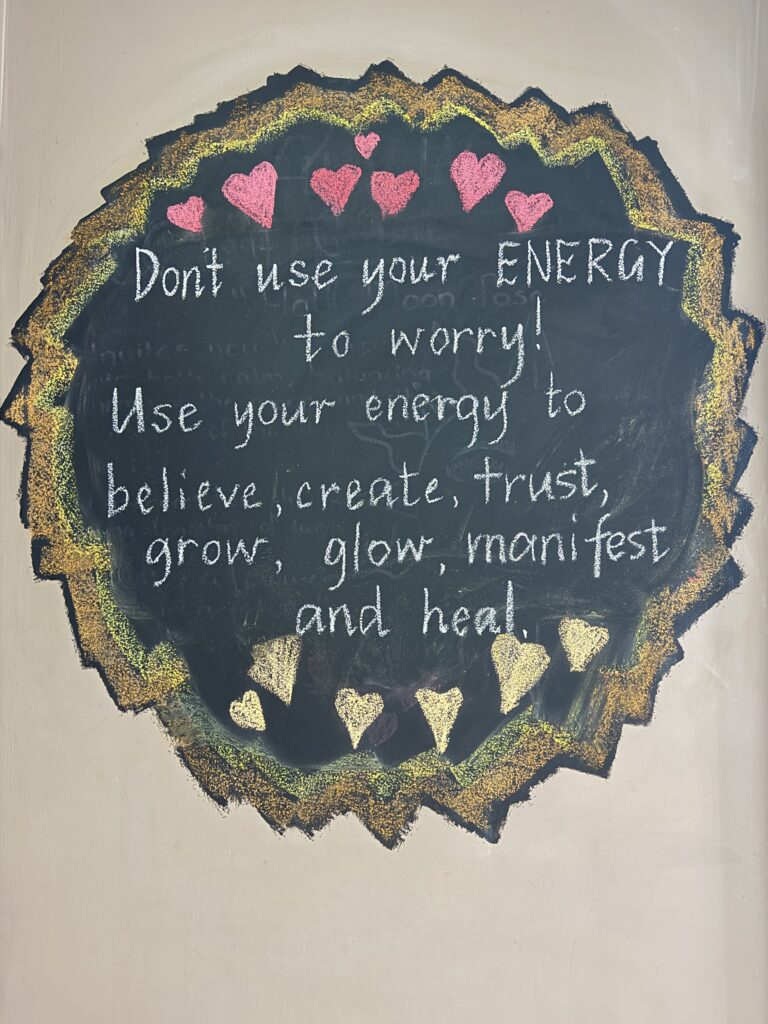 Don't use your ENERGY
to worry!
Use your energy to
believe, create, trust,
grow, glow, manifest
and heal.